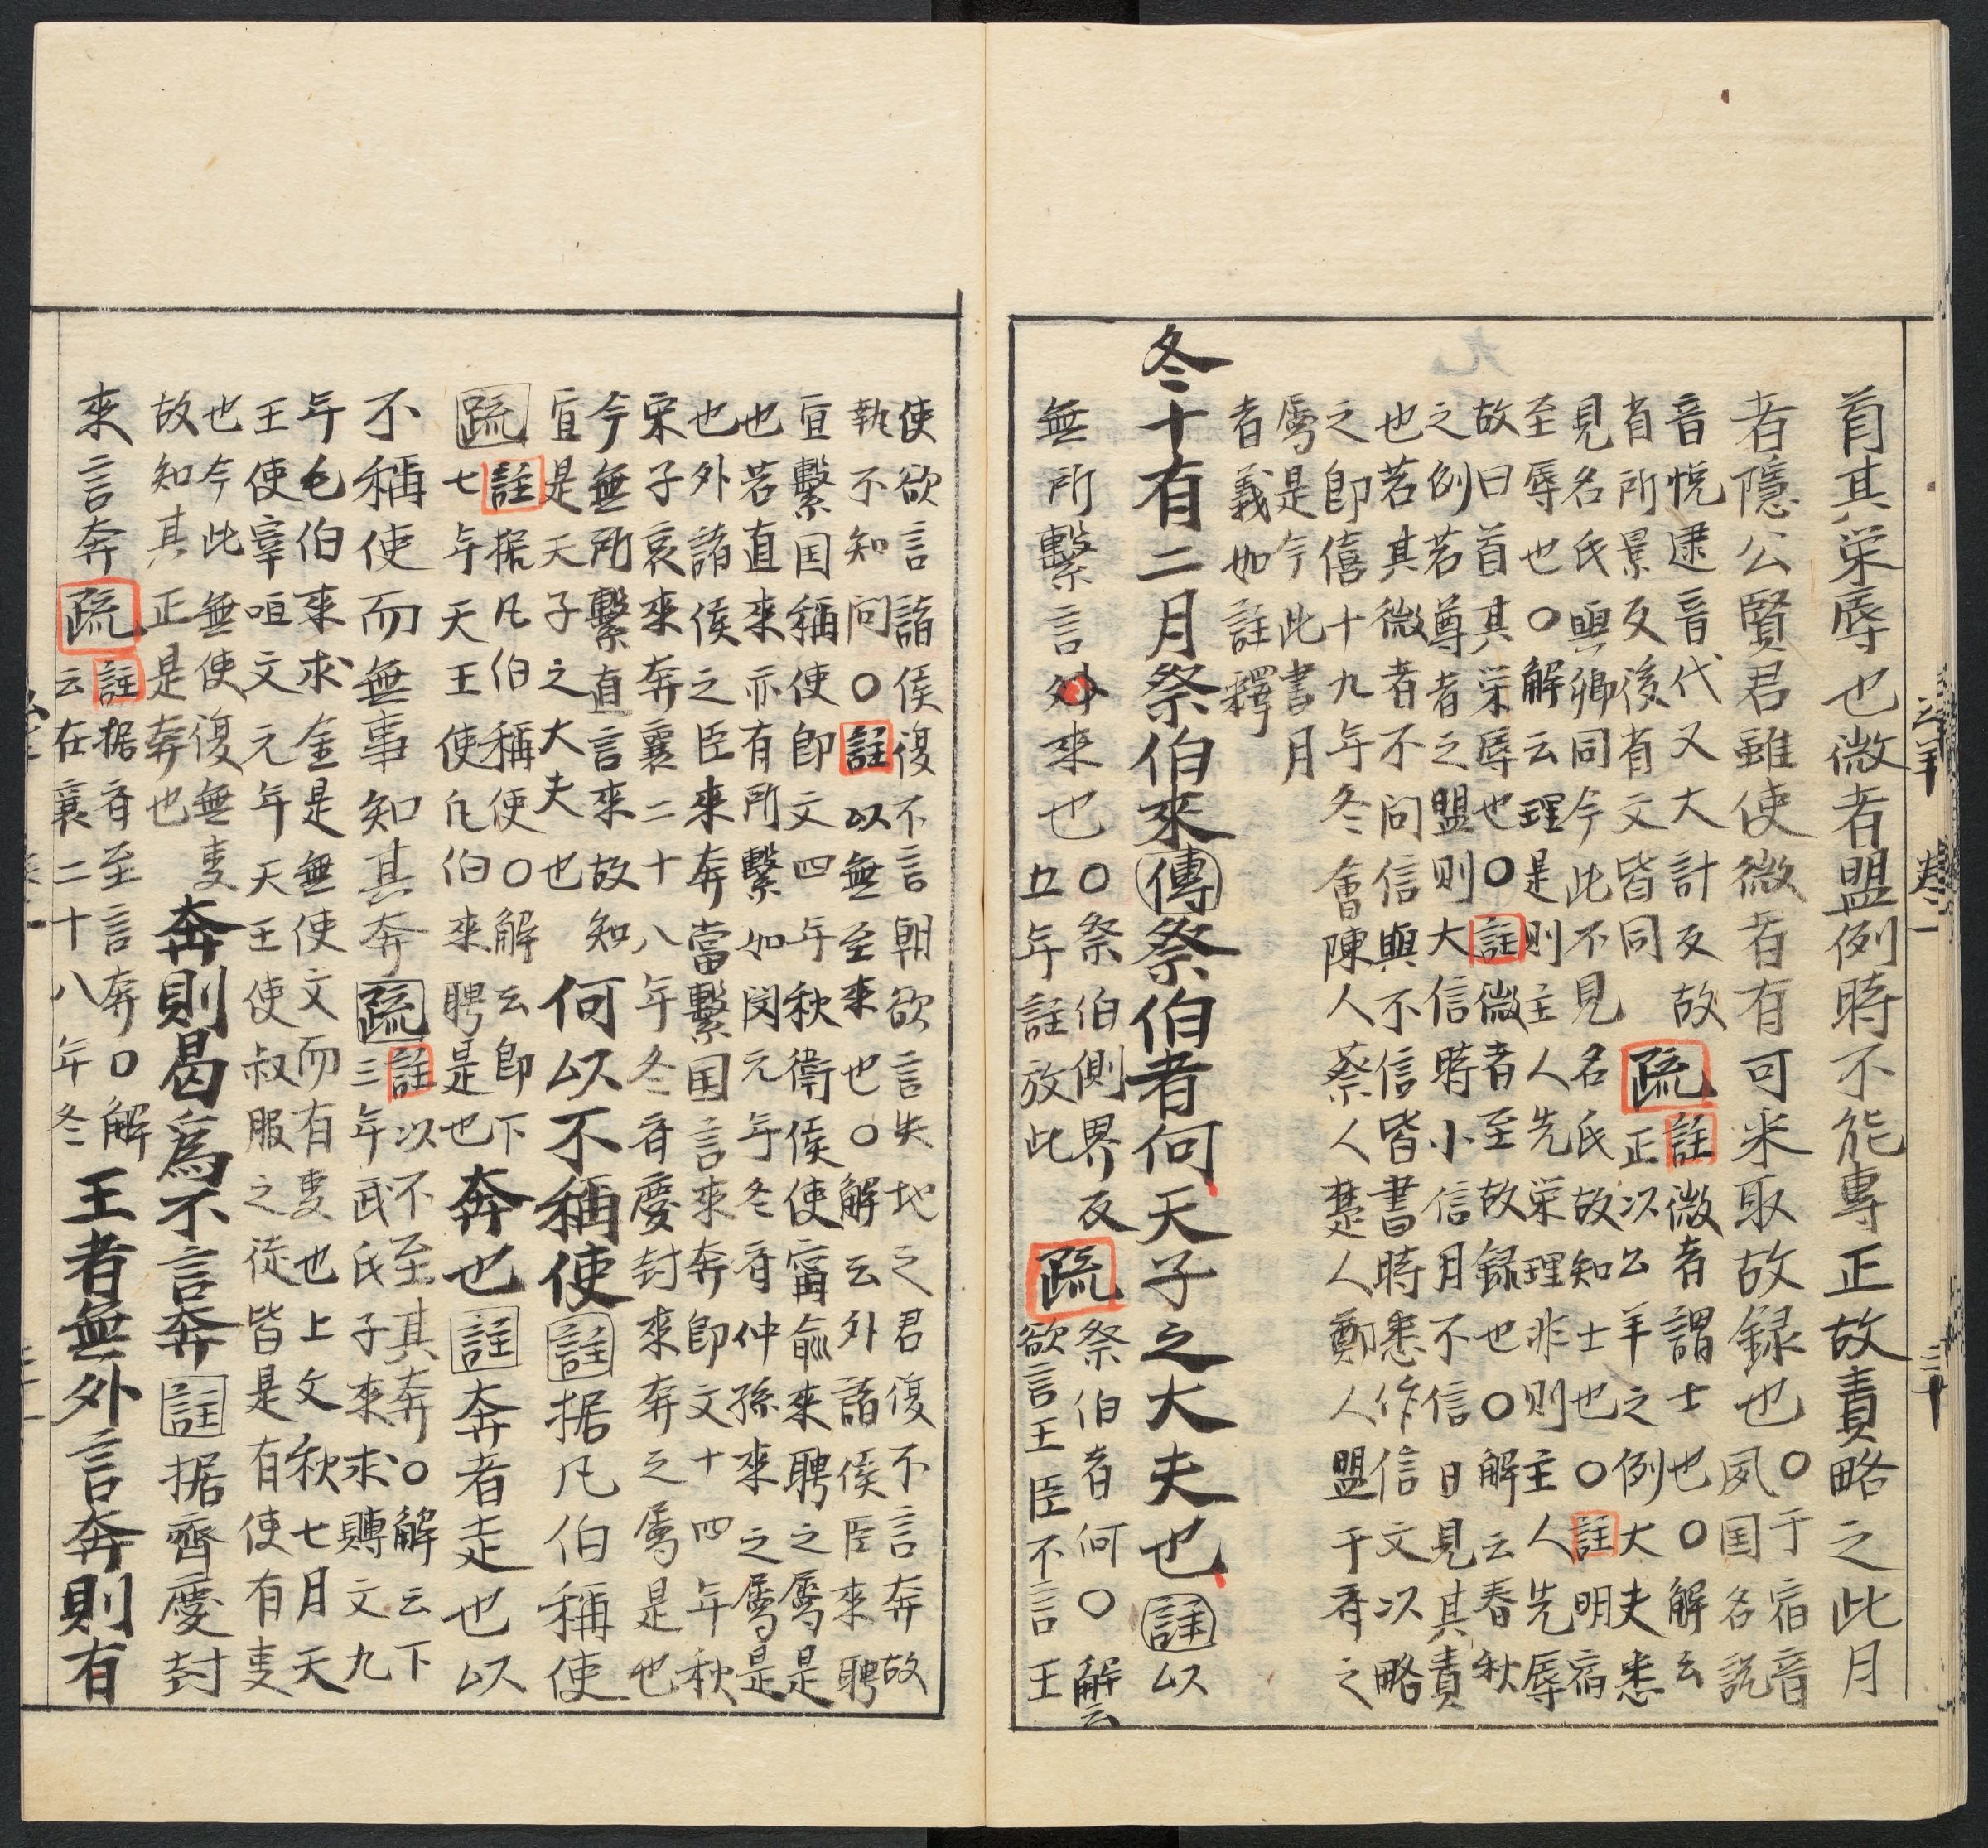 首其栄辱也微者盟例時不能專正故責略之此月
者隱公賢君雖使微者有可采取故録也〇于宿音
夙国名説
音悦逮音代又大計反故
省所景反後有文皆同
疏
註微者謂士也〇解云
正以公羊之例大夫悉
見名氏與卿同今此不見名氏故知士也〇註明宿
至辱也〇解云理是則主人先栄理非則主人先辱
故曰首其栄辱也〇註微者至故録也〇解云春秋
之例若尊者之盟則大信時小信月不信日見其責
也若其微者不問信與不信皆書時悉作信文以略
之即僖十九年冬會陳人蔡人楚人鄭人盟于斉之
属是今此書月
者義如註釋
冬十有二月祭伯來傳祭伯者何天子之大夫也註以
無所繫言來也〇祭伯側界反
五年註放此
疏
祭伯者何〇解云
欲言王臣不言王
使欲言諸侯復不言朝欲言失地之君復不言奔故
執不知問〇註以無至來也〇解云外諸侯臣來聘
宜繫国稱使即文四年秋衛侯使甯俞來聘之属是
也若直來亦有所繫如閔元年冬斉仲孫來之属是
也外諸侯之臣來奔當繫国言來奔即文十四年秋
宋子哀來奔襄二十八年冬斉慶封來奔之属是也
今無所繫直言來故知
宜是天子之大夫也
何以不稱使註据凡伯稱使
疏
註据凡伯稱使〇解云即下
七年天王使凡伯來聘是也
奔也註奔者走也以
不稱使而無事知其奔疏
註以不至其奔〇解云下
三年武氏子來求賻文九
年毛伯來求金是無使文而有㕝也上文秋七月天
王使宰咺文元年天王使叔服之徒皆是有使有㕝
也今此無使復無㕝
故知其正是奔也
奔則曷為不言奔註据齊慶封
來言奔疏
註据斉至言奔〇解
云在襄二十八年冬
王者無外言奔則有